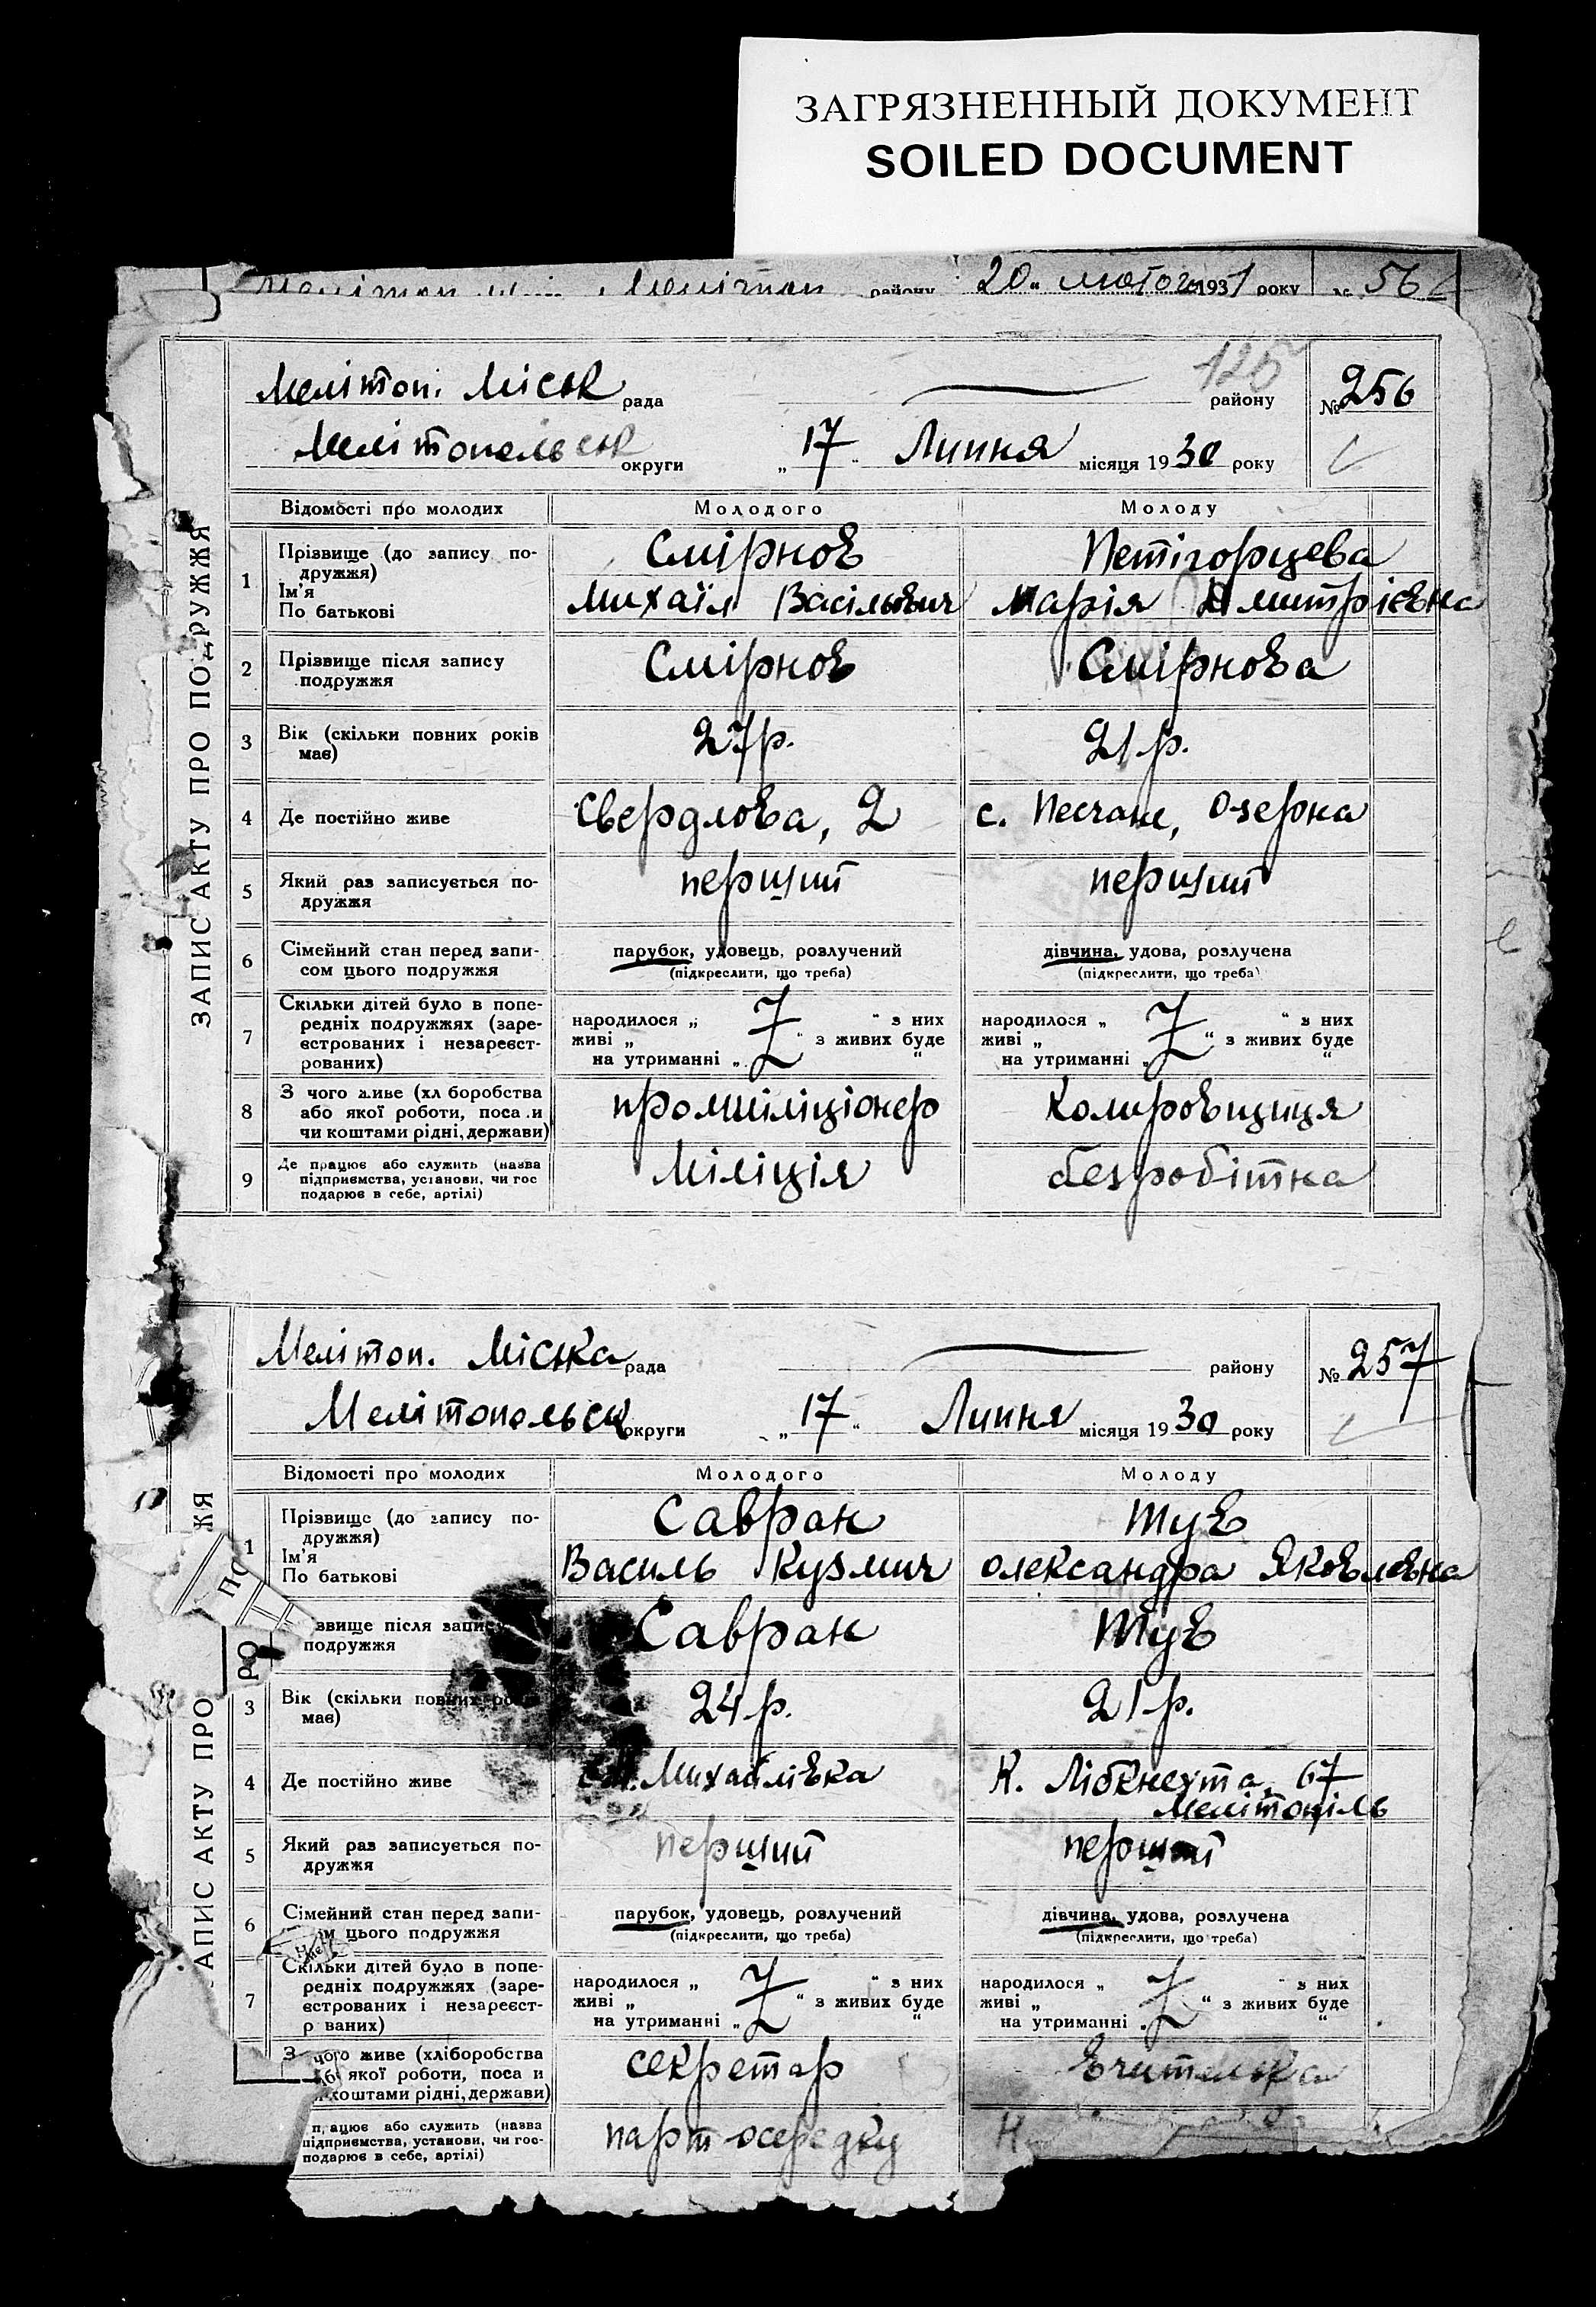 ЗАГРЯЗНЕННЫЙ ДОКУМЕНТ
SOILED DOCUMENT
району 20 лютого 1931 року № 56
125
Мелітоп. Міськ рада району № 256
Мелітопольськ округи „17“ Липня місяця 1930 року
ЗАПИС АКТУ ПРО ПОДРУЖЖЯ
Відомості про молодих Молодого Молоду
1 Прізвище (до запису по-
дружжя) Смірнов Петігорцева
Ім'я
По батькові Михаїл Васільович Марія Дмитрієвна
2 Прізвище після запису
подружжя Смірнов Смірнова
3 Вік (скільки повних років
має) 27 р. 21 р.
4 Де постійно живе Свердлова, 2 с. Песчане, Озерна
5 Який раз записується по-
дружжя перший перший
6 Сімейний стан перед запи-
сом цього подружжя парубок, удовець, розлучений дівчина, удова, розлучена
(підкреслити, що треба) (підкреслити, що треба)
7 Скільки дітей було в попе-
редніх подружжях (заре-
єстрованих і незареєст-
рованих) народилося „ “ з них народилося „ “ з них
живі „ “ з живих буде живі „ “ з живих буде
на утриманні „ “ на утриманні „ “
8 З чого живе (хл боробства
або якої роботи, поса и
чи коштами рідні, держави) проміліціонер
9 Де працює або служить (назва
підприємства, установи, чи гос
подарює в себе, артілі) Міліція безробітна
Мелітоп. Міська рада району № 257
Мелітопольськ округи „17“ Липня місяця 1930 року
АПИС АКТУ ПРО
Відомості про молодих Молодого Молоду
1 Прізвище (до запису по-
дружжя) Савран Шув
Ім'я
По батькові Василь Кузмич Олександра Яковлевна
звище після запису
подружжя Савран Шув
3 Вік (скільки повних ро
має) 24 р. 21 р.
4 Де постійно живе Михайлівка К. Лібкнехта, 67
Мелітопіль
5 Який раз записується по-
дружжя перший перший
6 Сімейний стан перед запи-
м цього подружжя парубок, удовець, розлучений дівчина, удова, розлучена
(підкреслити, що треба) (підкреслити, що треба)
7 Скільки дітей було в попе-
редніх подружжях (заре-
єстрованих і незареєст-
р ваних) народилося „ “ з них народилося „ “ з них
живі „ “ з живих буде живі „ “ з живих буде
на утриманні „ “ на утриманні „ “
З чого живе (хліборобства
якої роботи, поса и
коштами рідні, держави) секретар Вчителька
працює або служить (назва
підприємства, установи, чи гос-
подарює в себе, артілі) парт осередку